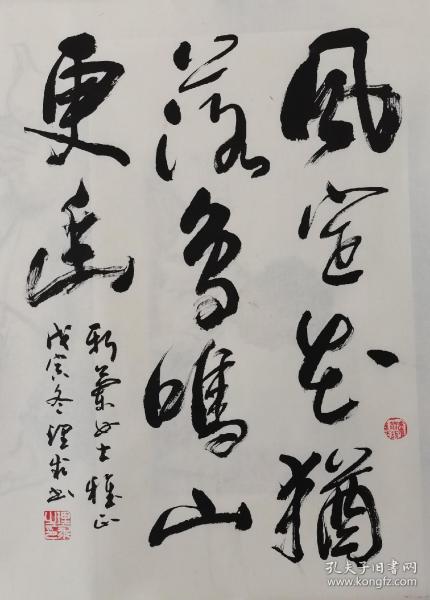 風定花猶
落鳥鳴山
更幽
蘭女士雅正
戊寅冬理書
孔夫子旧书网
www.kongfz.com